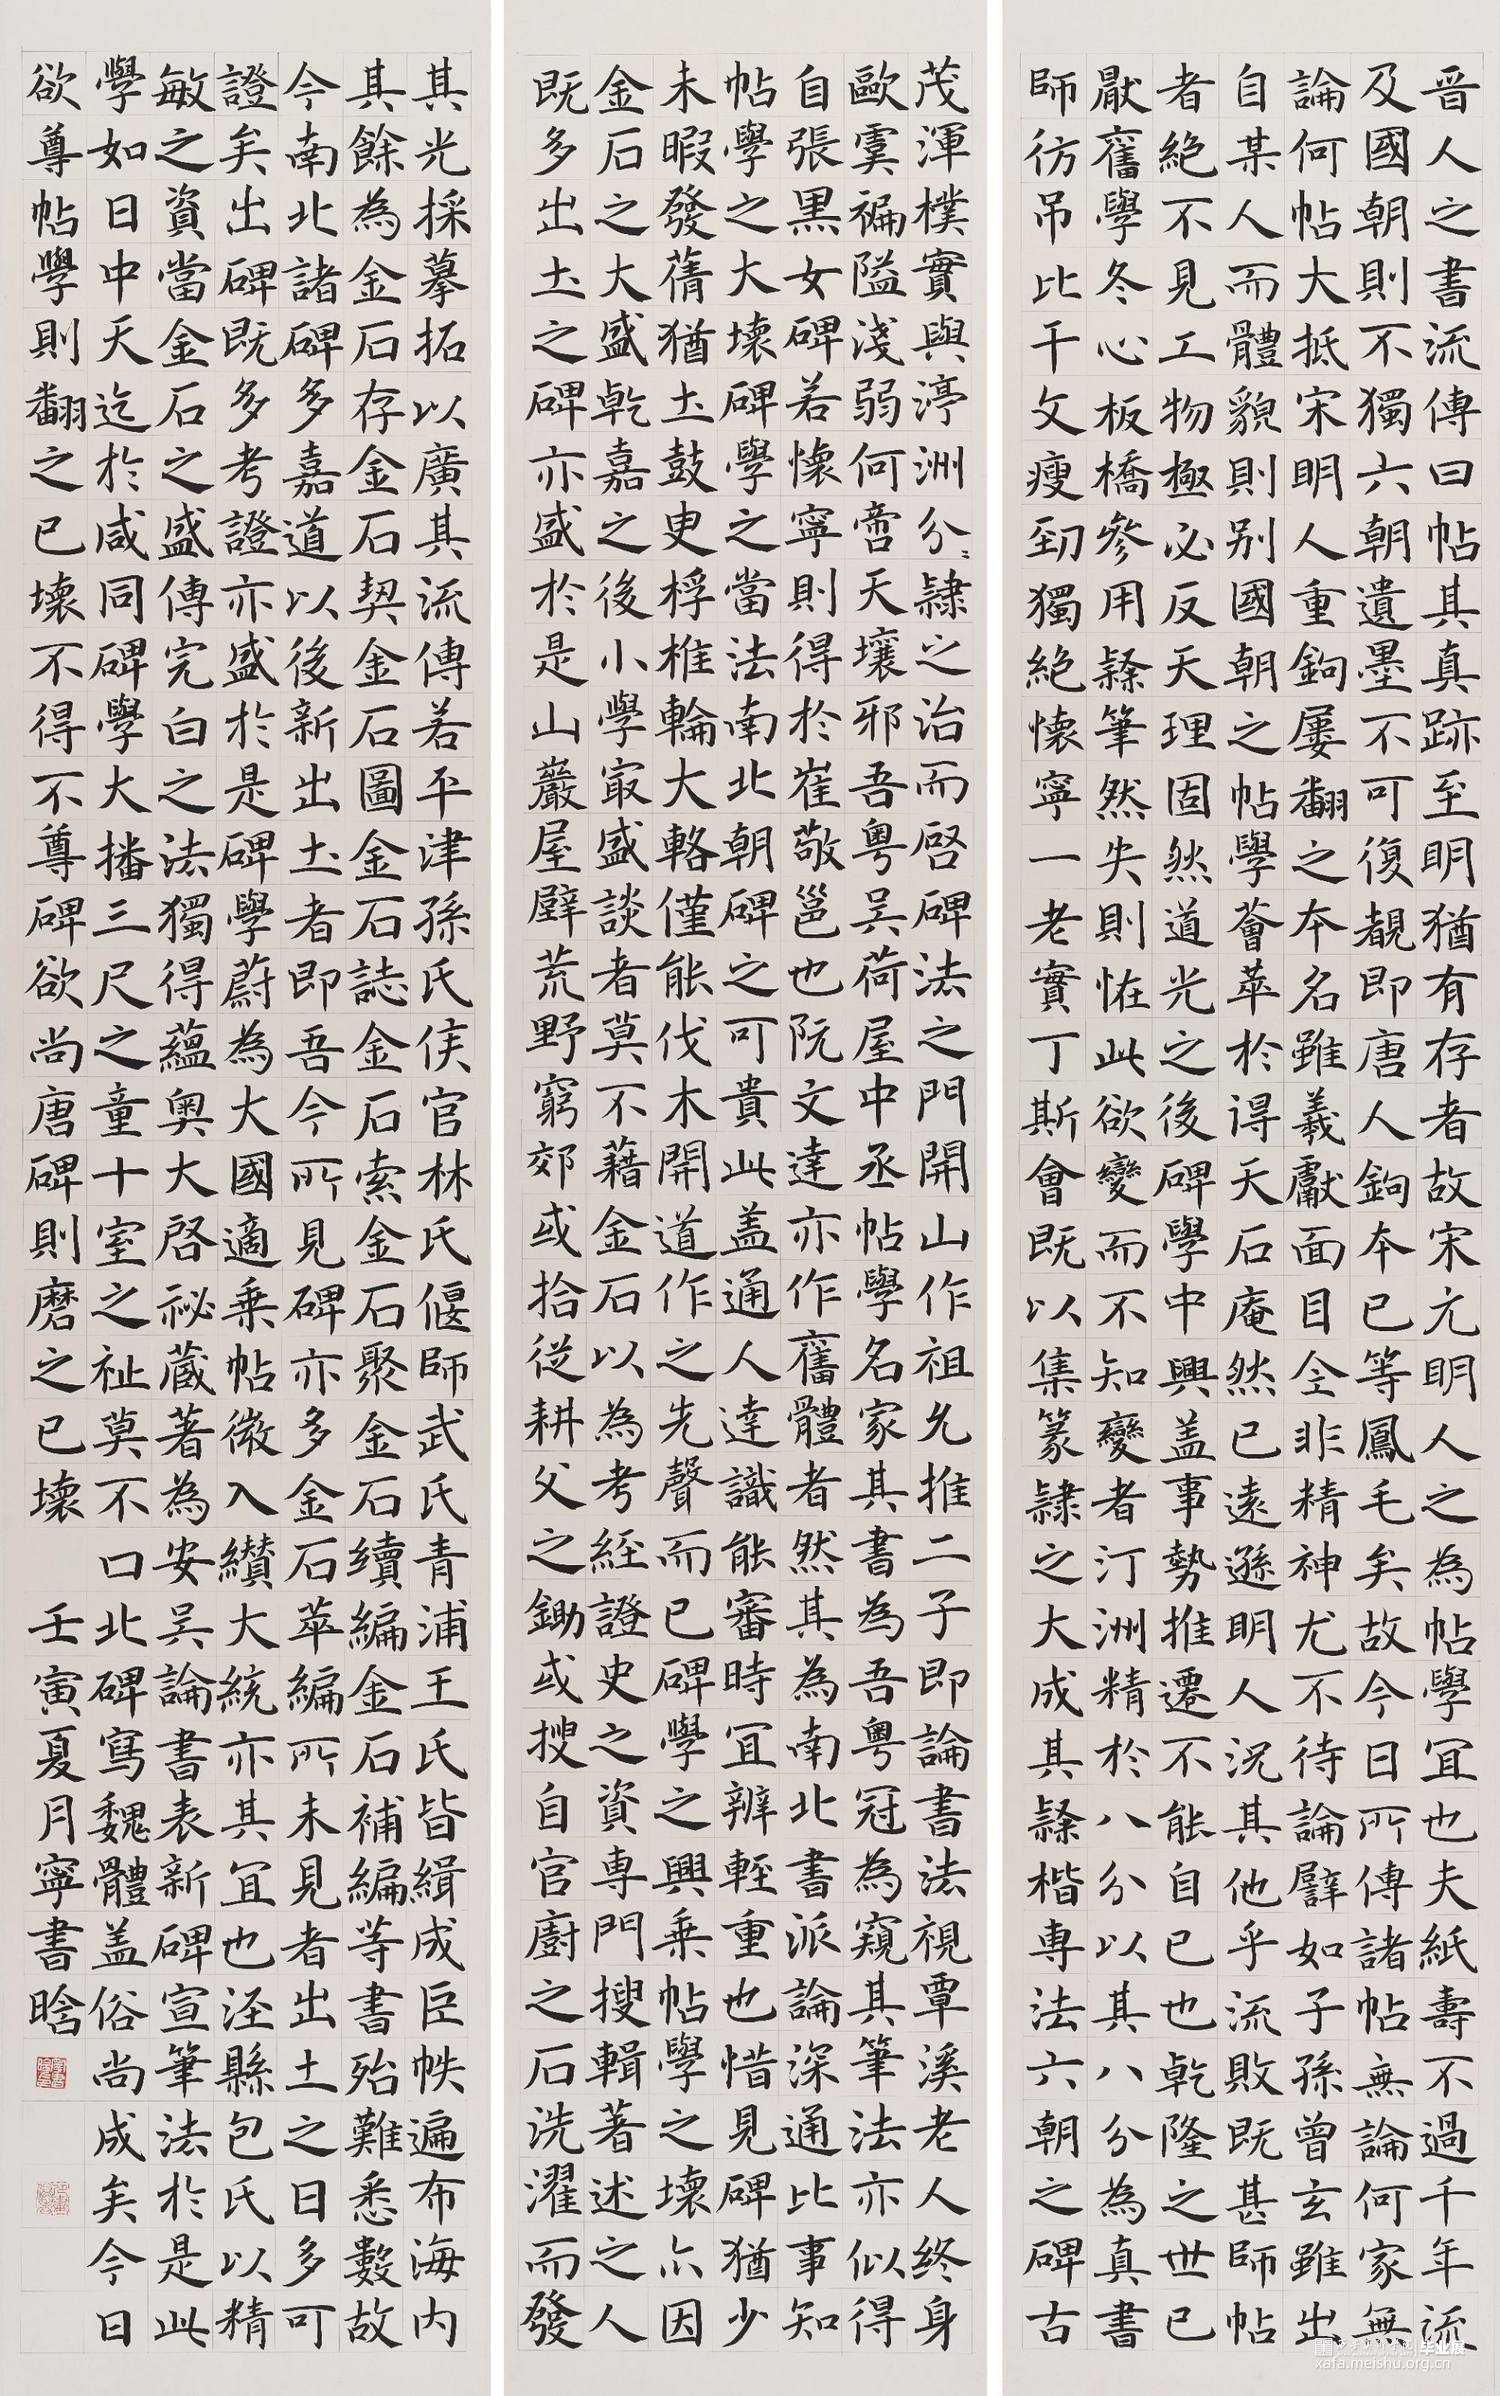 晋人之書流傳曰帖其真跡至明猶有存者故宋元明人之為帖學宜也夫紙壽不過千年流
及國朝則不獨六朝遺墨不可復覩即唐人鉤本已等鳳毛矣故今日所傳諸帖無論何家無
論何帖大抵宋明人重鉤屢翻之本名雖羲獻面目全非精神尤不待論譬如子孫曾玄雖出
自某人而體貌則别國朝之帖學薈萃於得天石庵然已遠遜明人況其他乎流敗既甚師帖
者絕不見工物極必反天理固然道光之後碑學中興盖事勢推遷不能自已也乾隆之世已
厭舊學冬心板橋參用隸筆然失則怪此欲變而不知變者汀洲精於八分以其八分為真書
師仿吊比干文瘦劲獨絕懷寧一老實丁斯會既以集篆隸之大成其隸楷專法六朝之碑古
茂渾樸實與渟洲分隸之治而啓碑法之門開山作祖允推二子即論書法視覃溪老人終身
歐虞褊隘淺弱何啻天壤邪吾粵吴荷屋中丞帖學名家其書為吾粵冠為窺其筆法亦似得
自張黑女碑若懷寧則得於崔敬邕也阮文達亦作舊體者然其為南北書派論深通比事知
帖學之大壞碑學之當法南北朝碑之可貴此盖通人達識能審時宜辨輕重也惜見碑猶少
未暇發蒨猶土鼓桴椎輪大輅僅能伐木開道作之先聲而已碑學之興乗帖學之壞亦因
金石之大盛乾嘉之後小學㝡盛談者莫不藉金石以為考經證史之資專門搜輯著述之人
既多出土之碑亦盛於是山巖屋壁荒野窮郊或拾從耕父之鋤或搜自官廚之石洗濯而發
其光採摹拓以廣其流傳若平津孫氏侯官林氏偃師武氏青浦王氏皆緝成巨帙遍布海内
其餘為金石存金石契金石圖金石誌金石索金石聚金石續編金石補編等書殆難悉數故
今南北諸碑多嘉道以後新出土者即吾今所見碑亦多金石萃編所未見者出土之日多可
證矣出碑既多考證亦盛於是碑學蔚為大國適乗帖微入纘大統亦其宜也涇縣包氏以精
敏之資當金石之盛傳完白之法獨得蘊奥大啓祕蔵著為安吴論書表新碑宣筆法於是此
學如日中天迄於咸同碑學大播三尺之童十室之社莫不口北碑寫魏體盖俗尚成矣今日
欲尊帖學則翻之已壞不得不尊碑欲尚唐碑則磨之已壞
壬寅夏月寧書晗